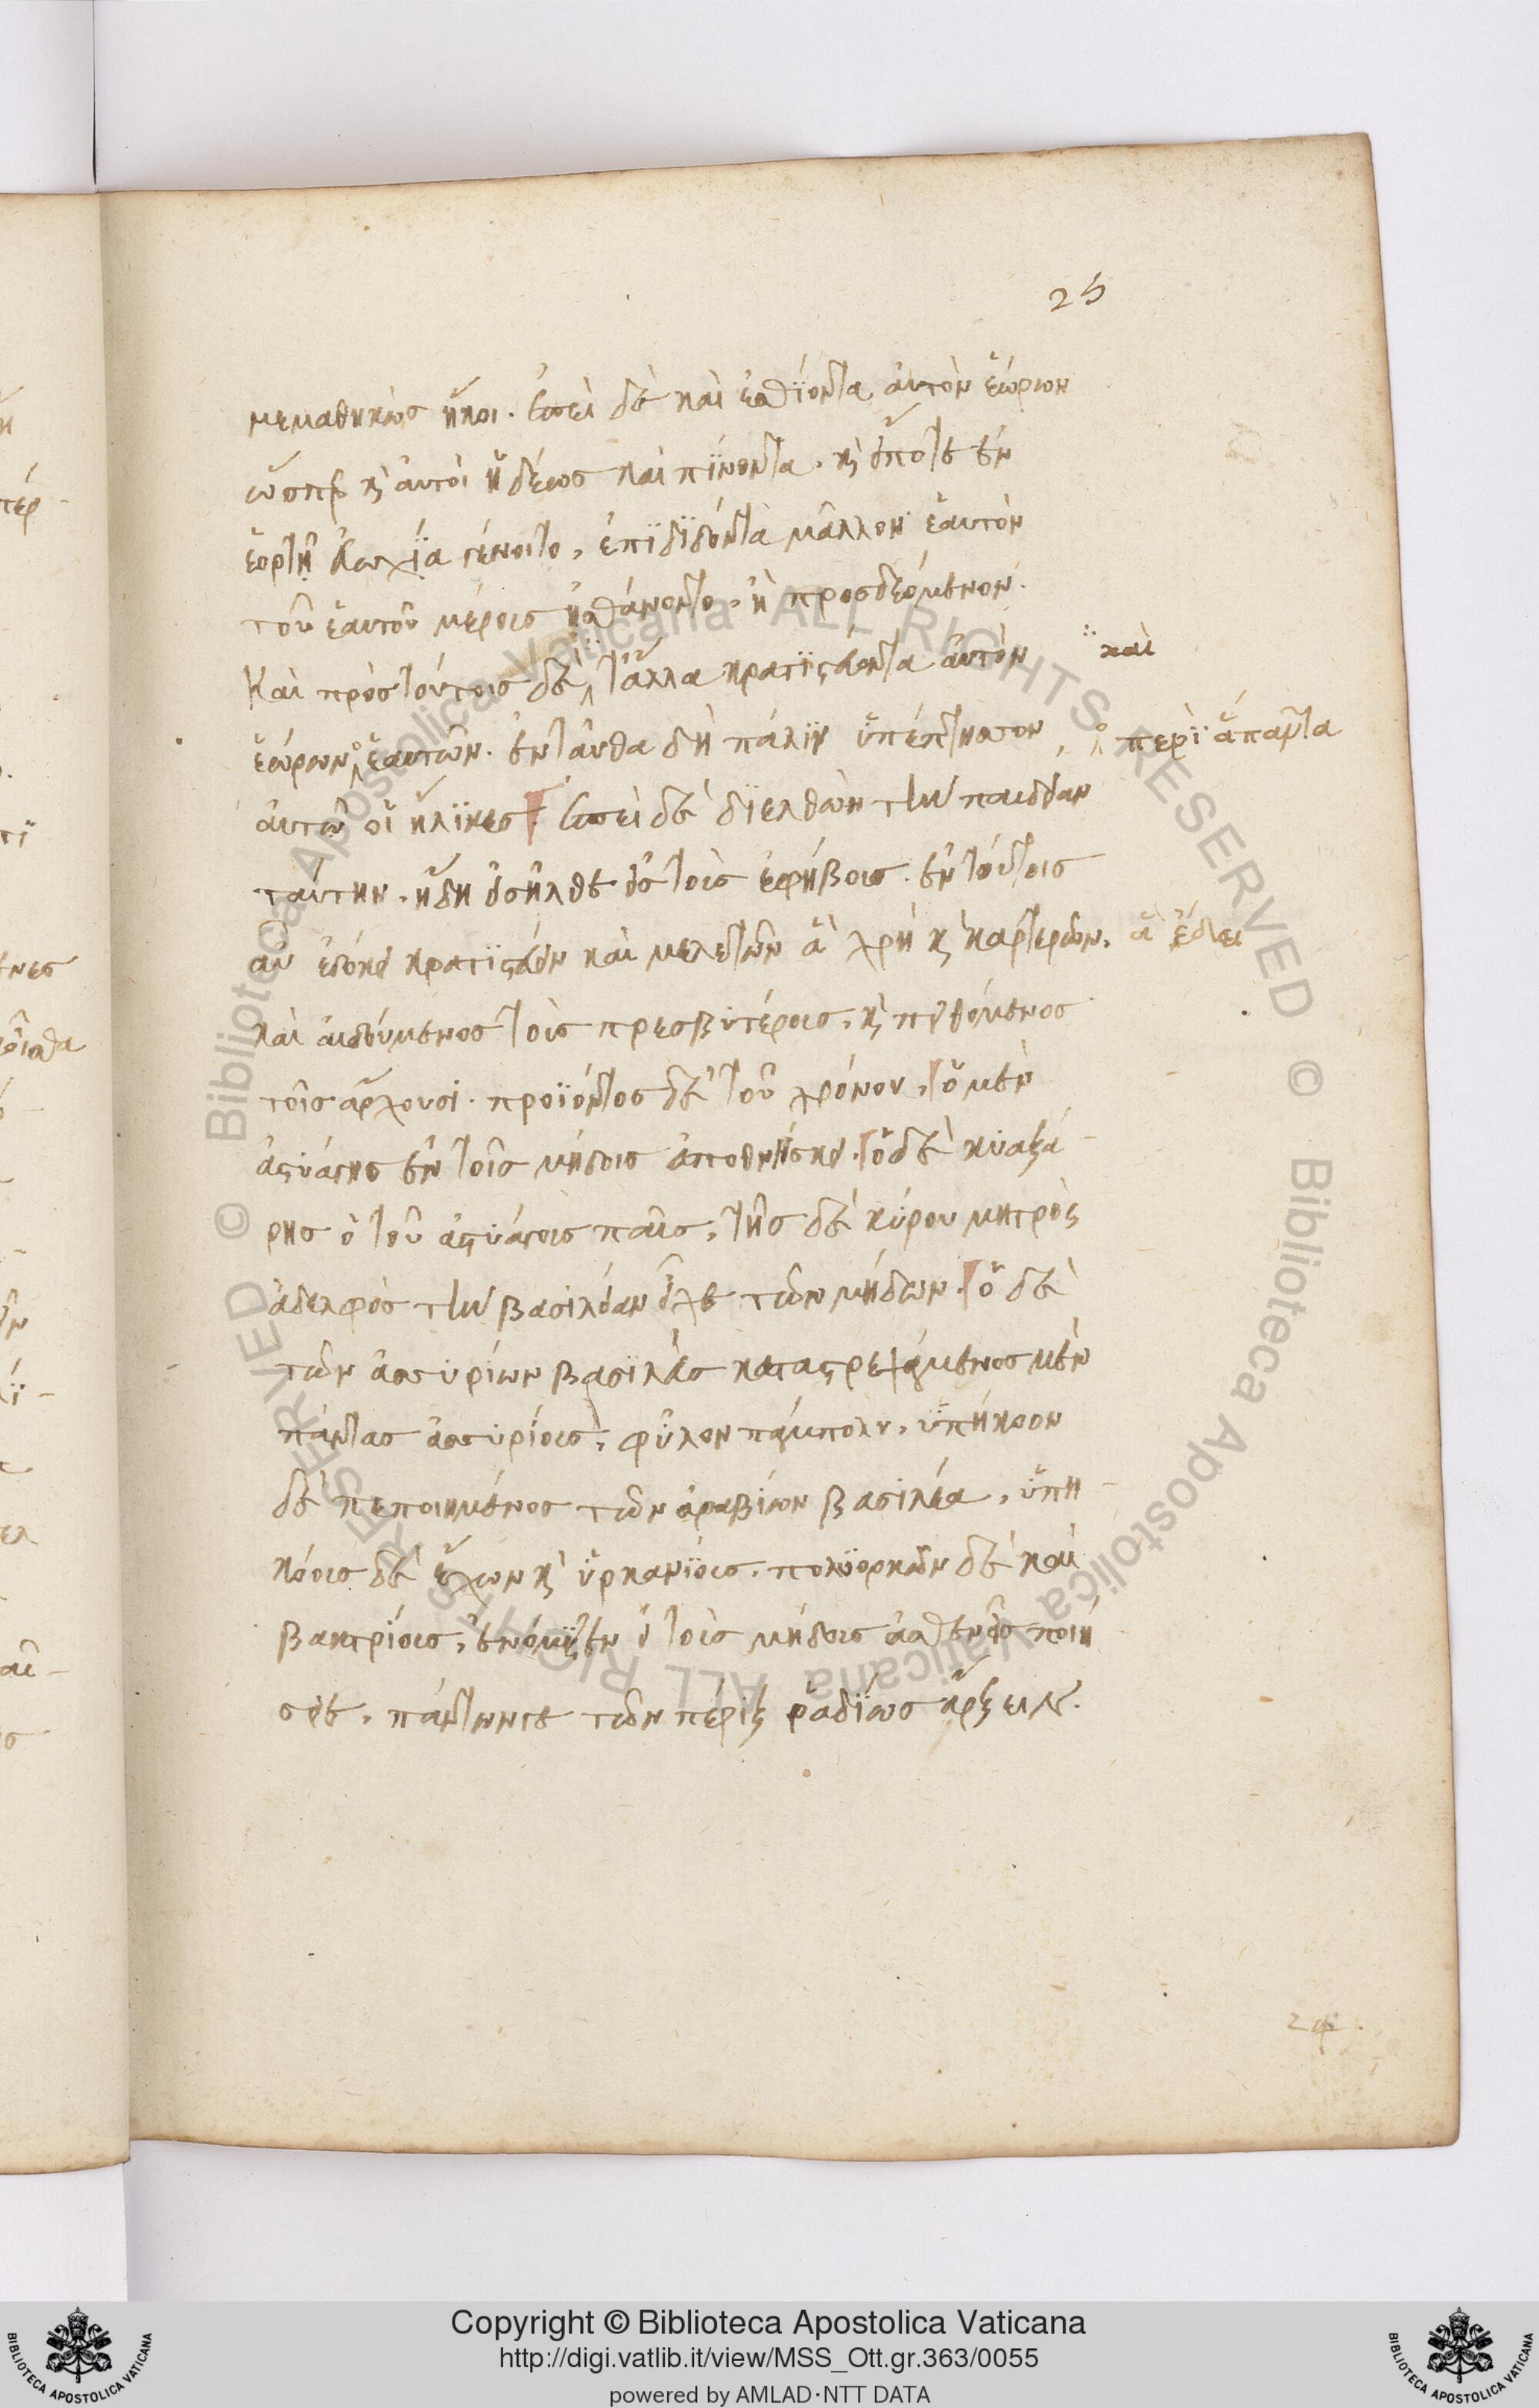 25
μεμαθηκὼς ἥκοι. ἐπεὶ δὲ καὶ ἐσθίοντα ἀυτὸν ἑώρων
ὥσπερ κ̀ ἀυτοὶ ἡδέως καὶ πίνοντα. κ̀ εἴποτε ἐν
ἑορτῆ εὐωχία γένοιτο, ἐπιδιδόντα μᾶλλον ἑαυτὸν
τοῦ ἑαυτοῦ μέρους ἠσθάνοντο, ἢ προσδεόμενον.
Καὶ πρὸς τούτοις δὲ τἆλλα κρατιστεύοντα ἀυτὸν
καὶ
ἑώρων ἑαυτῶν. ἐνταῦθα δὴ πάλιν ὑπέπτησσον
περὶ ἅπαντα
ἀυτῶ οἱ ἥλικες. ἐπεὶ δὲ διελθὼν τὴν παιδείαν
ταύτην. ἤδη εἰσῆλθε εἰς τοὺς ἐφήβους. ἐν τούτοις
αὖ ἐδόκει κρατιστεύειν καὶ μελετῶν ἃ χρὴ κ̀ καρτερῶν.
ἃ ἔδει
καὶ αἰδούμενος τοὺς πρεσβυτέρους, κ̀ πειθόμενος
τοῖς ἄρχουσι. προϊόντος δὲ τοῦ χρόνου, ὁ μὲν
ἀστυάγης ἐν τοῖς μήδοις ἀποθνήσκει. ὁ δὲ κυαξά-
ρης ὁ τοῦ ἀστυάγους παῖς, τῆς δὲ κύρου μητρὸς
ἀδελφὸς τὴν βασιλείαν εἶχε τῶν μήδων. ὁ δὲ
τῶν ἀσσυρίων βασιλεὺς καταστρεψάμενος μὲν
πάντας ἀσσυρίους, φῦλον πάμπολυ, ὑπήκοον
δὲ πεποιημένος τῶν ἀραβίων βασιλέα, ὑπη-
κόους δὲ ἔχων κ̀ ὑρκανίους. πολυορκῶν δὲ καὶ
βακτρίους, ἐνόμιζεν εἰ τοὺς μήδους ἀσθενεῖς ποιή-
σειε, πάντων τε τῶν πέριξ ῥαδίως ἄρξειν.
Copyright © Biblioteca Apostolica Vaticana
http://digi.vatlib.it/view/MSS_Ott.gr.363/0055
powered by AMLAD·NTT DATA